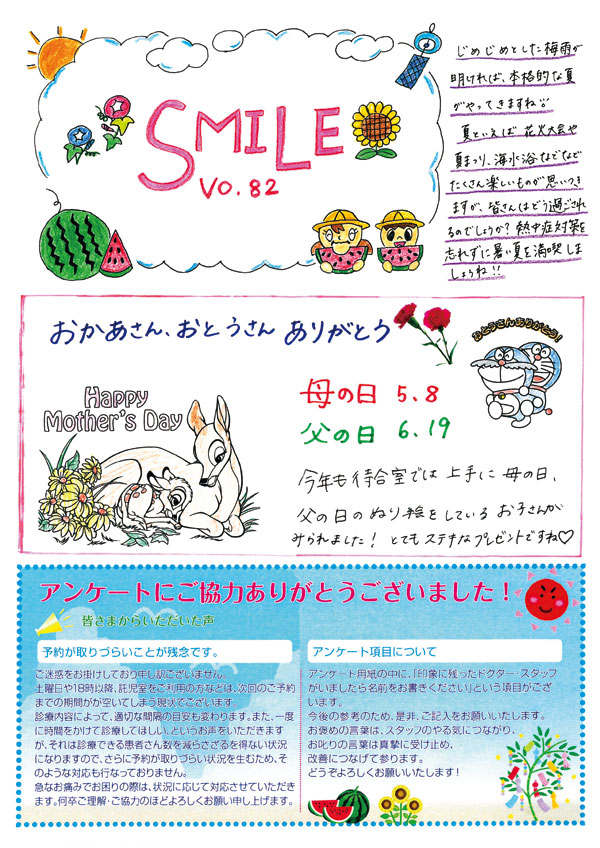 SMILE
VO.82
じめじめとした梅雨が
明ければ、本格的な夏
がやってきますね!!
夏といえば 花火大会や
夏まつり、海水浴などなど
たくさん楽しいものが思いつき
ますが、皆さんはどう過ごされ
るのでしょうか?熱中症対策を
忘れずに暑い夏を満喫しま
しょうね!!
おかあさん、おとうさん ありがとう
おとうさんありがとう!
Happy
Mother's Day
母の日 5.8
父の日 6.19
今年も待合室では 上手に 母の日、
父の日のぬり絵をしている お子さんが
みられました! とてもステキなプレゼントですね♡
アンケートにご協力ありがとうございました!
皆さまからいただいた声
予約が取りづらいことが残念です。
ご迷惑をお掛けしており申し訳ございません。
土曜日や18時以降、託児室をご利用の方などは、次回のご予約
までの期間がが空いてしまう現状でございます。
診療内容によって、適切な間隔の目安も変わります。また、一度
に時間をかけて診療してほしい、というお声をいただきます
が、それは診療できる患者さん数を減らさざるを得ない状況
になりますので、さらに予約が取りづらい状況を生むため、そ
のような対応も行なっておりません。
急なお痛みでお困りの際は、状況に応じて対応させていただき
ます。何卒ご理解・ご協力のほどよろしくお願い申し上げます。
アンケート項目について
アンケート用紙の中に、「印象に残ったドクター・スタッフ
がいましたら名前をお書きください」という項目がござ
います。
今後の参考のため、是非、ご記入をお願いいたします。
お褒めの言葉は、スタッフのやる気につながり、
お叱りの言葉は真摯に受け止め、
改善につなげて参ります。
どうぞよろしくお願いいたします!